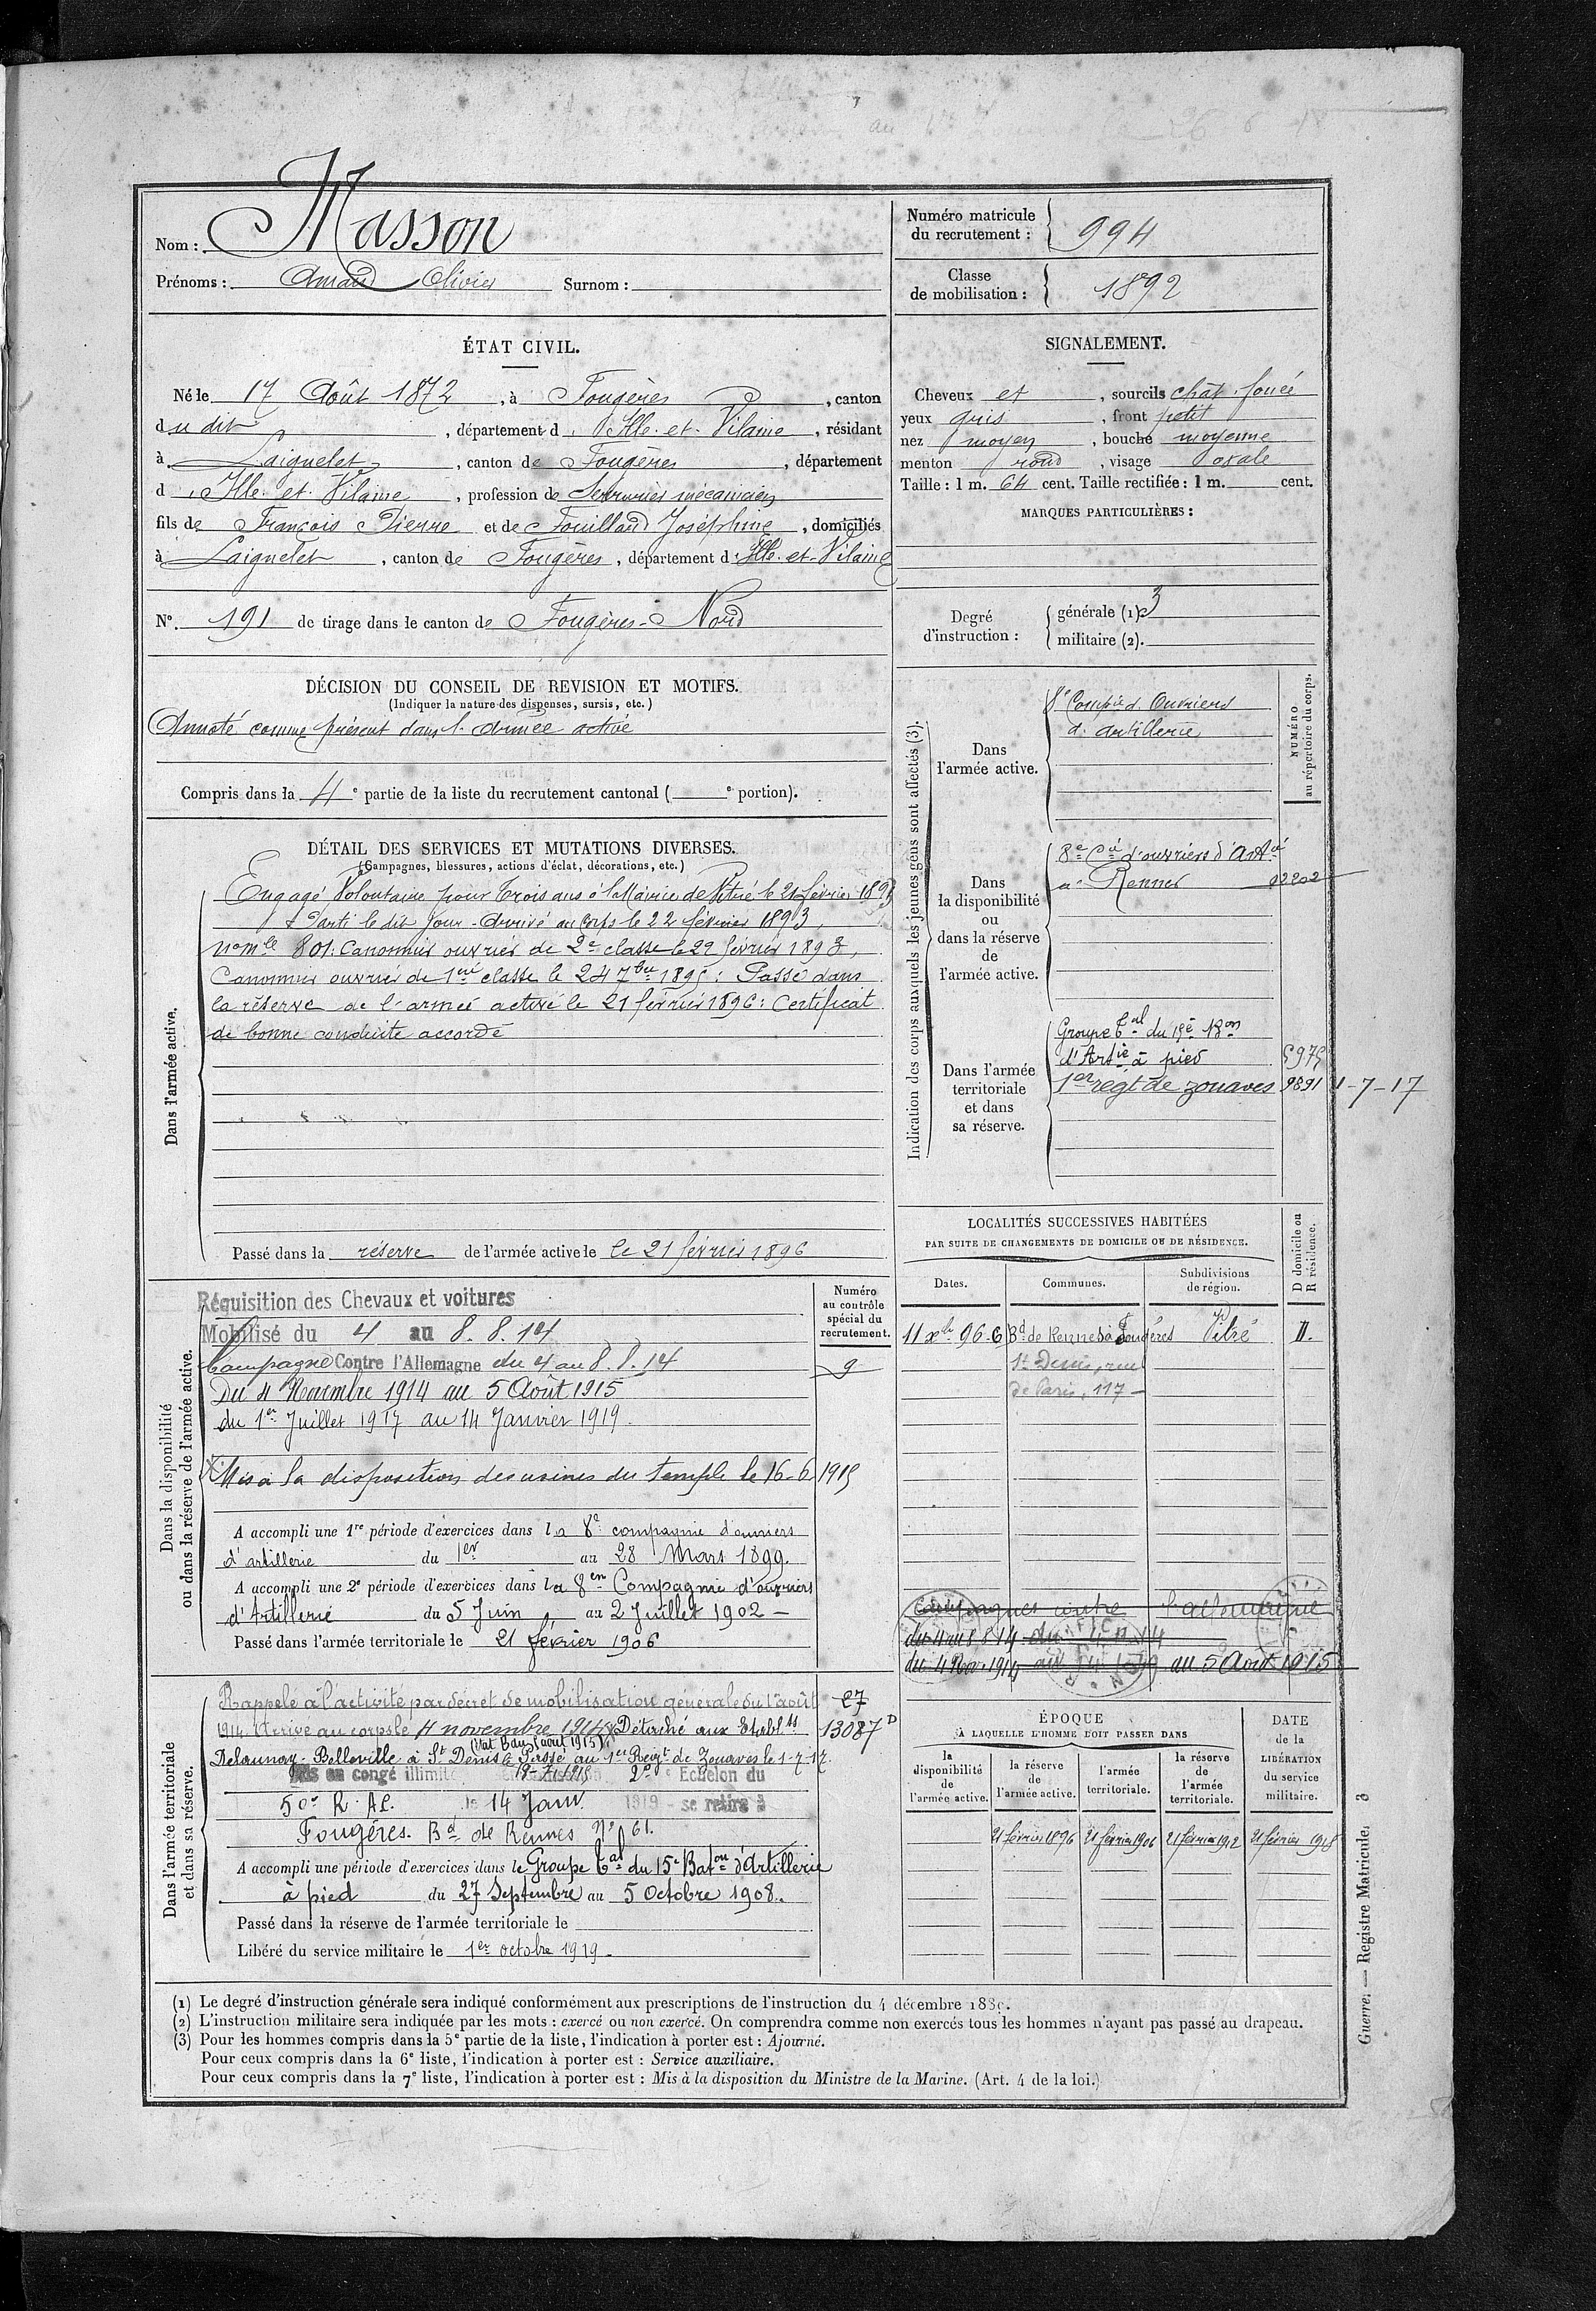 Nom : Masson
Prénoms : Amand Olivier Surnom :
Numéro matricule
du recrutement : 994
Classe
de mobilisation : 1892
ÉTAT CIVIL.
Né le 17 Août 1872, à Fougères, canton
du dit, département d'Ille-et-Vilaine, résidant
à Laignelet, canton de Fougères, département
d'Ille-et-Vilaine, profession de Serrurier mécanicien
fils de François Pierre et de Fouilland Joséphine, domiciliés
à Laignelet, canton de Fougères, département d'Ille-et-Vilaine
N° 191 de tirage dans le canton de Fougères-Nord
DÉCISION DU CONSEIL DE REVISION ET MOTIFS.
(Indiquer la nature des dispenses, sursis, etc.)
Annoté comme présent dans l'armée active
Compris dans la 4e partie de la liste du recrutement cantonal ( e portion).
DÉTAIL DES SERVICES ET MUTATIONS DIVERSES.
(Campagnes, blessures, actions d'éclat, décorations, etc.)
Dans l'armée active.
Engagé Volontaire pour trois ans à la Mairie de Vitré le 21 février 1893
Parti le dit jour - Arrivé au corps le 22 février 1893,
n° mle 801: Canonnier ouvrier de 2e classe le 22 février 1893,
Canonnier ouvrier de 1ere classe le 24 7bre 1895: Passé dans
la réserve de l'armée active le 21 février 1896: Certificat
de bonne conduite accordé
Passé dans la réserve de l'armée active le le 21 février 1896
SIGNALEMENT.
Cheveux et, sourcils chât. foncé
yeux gris, front petit
nez moyen, bouche moyenne
menton rond, visage ovale
Taille : 1 m. 64 cent. Taille rectifiée : 1 m. cent.
MARQUES PARTICULIÈRES :
Degré
d'instruction :
générale (1). 3
militaire (2).
Indication des corps auxquels les jeunes gens sont affectés (3).
NUMÉRO
au répertoire du corps.
Dans
l'armée active.
8e Compie d'Ouvriers
d'artillerie
Dans
la disponibilité
ou
dans la réserve
de
l'armée active.
8e Cie d'ouvriers d'Artie
à Rennes 02202
Dans l'armée
territoriale
et dans
sa réserve.
Groupe tal du 15e Bon
d'Artie à pied 5975
1er regt de zouaves 9891 1-7-17
LOCALITÉS SUCCESSIVES HABITÉES
PAR SUITE DE CHANGEMENTS DE DOMICILE OU DE RÉSIDENCE.
Dates. Communes. Subdivisions
de région. D domicile ou
R résidence.
11 xbre 96 6 Bd de Rennes à Fougères Vitré D.
St Denis, rue
de Paris, 117 -
Dans la disponibilité
ou dans la réserve de l'armée active.
Numéro
au contrôle
spécial du
recrutement.
9
Réquisition des Chevaux et voitures
Mobilisé du 4 au 8.8.14
Campagne Contre l'Allemagne du 4 au 8.8.14
Du 4 Novembre 1914 au 5 Août 1915
du 1er Juillet 1917 au 14 Janvier 1919.
Mis à la disposition des usines du temple le 16-6-1915
A accompli une 1re période d'exercices dans la 8e compagnie d'ouvriers
d'artillerie du 1er au 28 Mars 1899.
A accompli une 2e période d'exercices dans la 8en Compagnie d'ouvriers
d'Artillerie du 5 Juin au 2 Juillet 1902 -
Passé dans l'armée territoriale le 21 février 1906
Campagnes contre l'allemagne
du 4 au 8 8 14
du 4 Nov. 1914 au 5 Août 1915
Dans l'armée territoriale
et dans sa réserve.
Rappelé à l'activité par décret de mobilisation générale du 1er août 27
1914. Arrivé au corps le 4 novembre 1914 Détaché aux Etablts 13087 D
Delaunay-Belleville à St Denis Passé au 1er Regt de Zouaves le 1-7-17.
en congé illimité 2e Echelon du
50e R. A. C. le 14 Janv. 1919 - se retire à
Fougères. Bd de Rennes N° 61.
A accompli une période d'exercices dans le Groupe tal du 15e Baton d'Artillerie
à pied du 27 Septembre au 5 Octobre 1908.
Passé dans la réserve de l'armée territoriale le
Libéré du service militaire le 1er octobre 1919 -
ÉPOQUE
À LAQUELLE L'HOMME DOIT PASSER DANS
DATE
de la
LIBÉRATION
du service
militaire.
la
disponibilité
de
l'armée active.
la réserve
de
l'armée active.
l'armée
territoriale.
la réserve
de
l'armée
territoriale.
21 février 1896 21 février 1906 21 février 1912 21 février 1918
Guerre. — Registre Matricule. 3
(1) Le degré d'instruction générale sera indiqué conformément aux prescriptions de l'instruction du 4 décembre 1889.
(2) L'instruction militaire sera indiquée par les mots : exercé ou non exercé. On comprendra comme non exercés tous les hommes n'ayant pas passé au drapeau.
(3) Pour les hommes compris dans la 5e partie de la liste, l'indication à porter est : Ajourné.
Pour ceux compris dans la 6e liste, l'indication à porter est : Service auxiliaire.
Pour ceux compris dans la 7e liste, l'indication à porter est : Mis à la disposition du Ministre de la Marine. (Art. 4 de la loi.)